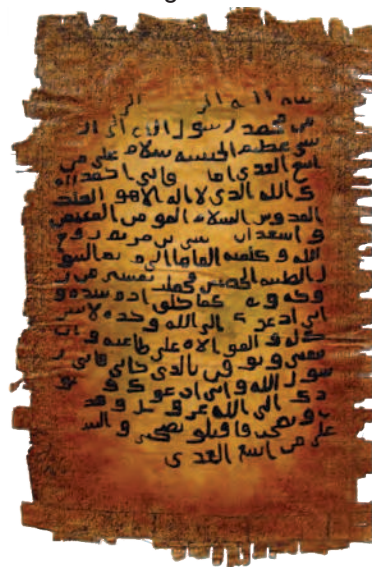 بسم الله الر الر
من محمد رسول الله الى ال
شي عظيم الحبشه سلام على من
اتبع الهدى اما فاني احمد اليه
ك الله الذي لا اله الا هو الملك
القدوس السلام المومن المهيمن
و اشهد ان عيسى بن مريم روح
الله و كلمته القاها الى مريم البتو
ل الطيبه الحصينه فحملت بعيسى من ر
وحه و كما خلق ادم بيده و
اني ادعوك الى الله وحده لا شر
يك له و الموالاه على طاعته و ان
تتبعني و توقن بالذي جاني فاني ر
سول الله و اني ادعوك و جنو
دك الى الله عز و جل و قد
و نصحت فاقبلو نصيحتي و السل
على من اتبع الهدى